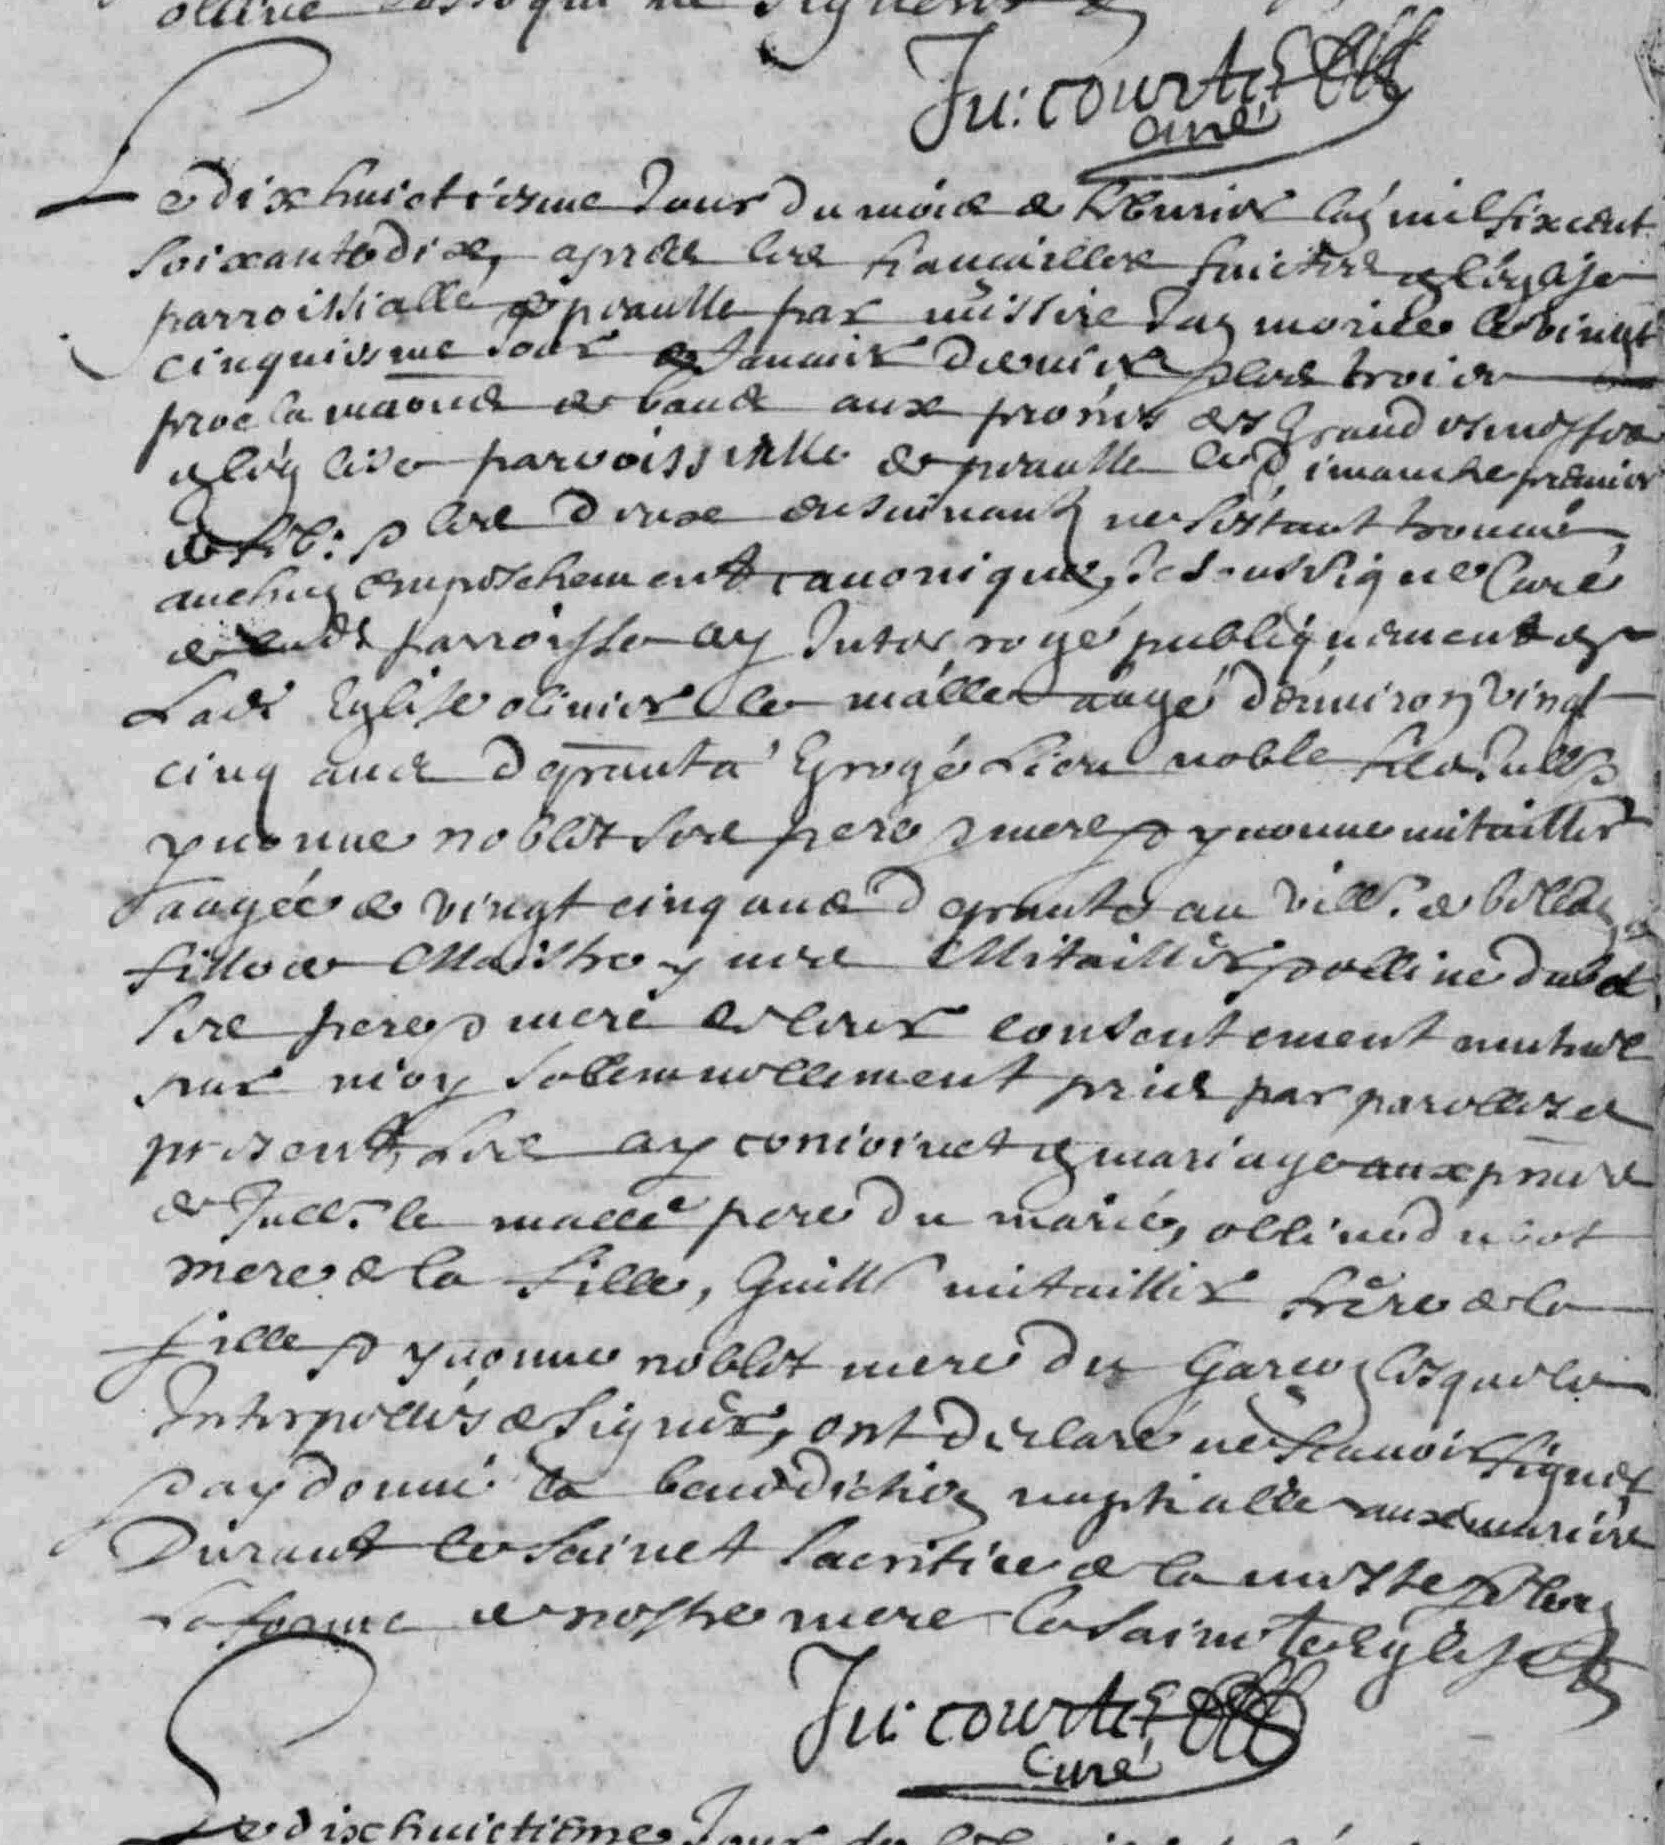 ollive qui ne signent
Ju: courtel
curé
Le dixhuictiesme Jour du mois de febvrier lan mil six cent
soixante dix, apres les fiancailles faictes en léglise
parroissialle de par missire Jan morice le vingt
cinquiesme jour de Januier dernier & les trois
proclamaons de bans aux prosnes des Grandes messes
en léglise parroissialle de le dimanche premier
de feb: & les deux ensuiuant, ne sestant trouué
auchun empeschement canonique, Je soussigné Curé
de parroisse ay Interrogé publiquement en
Ladt Eglise oliuier le mallé aagé denuiron vingt
cinq ans noble fils Jull &
yuonne noblet ses pere & mere & yuonne mitaillier
aagée de vingt cinq ans au vill. de
fille de Maistre yues Mitaillier & olliue dubot
ses pere & mere & leur consentement mutuel
par moy sollemnellement pris par parolles de
present, Les ay conioinct en mariage aux pnces
de Jull. le mallé pere du marié, olliue dubot
mere de la fille, Guill mitaillier frere de la
fille & yuonne noblet mere du Garcon lesquels
Interpellés de signer, ont declaré ne scauoir signer
& ay donné la benediction nuptialle aux mariés
Durant le sainct sacrifice de la messe selon
La forme de nostre mere la saincte Eglise
Ju: courtel
Curé
Le dixhuictieme Jour de